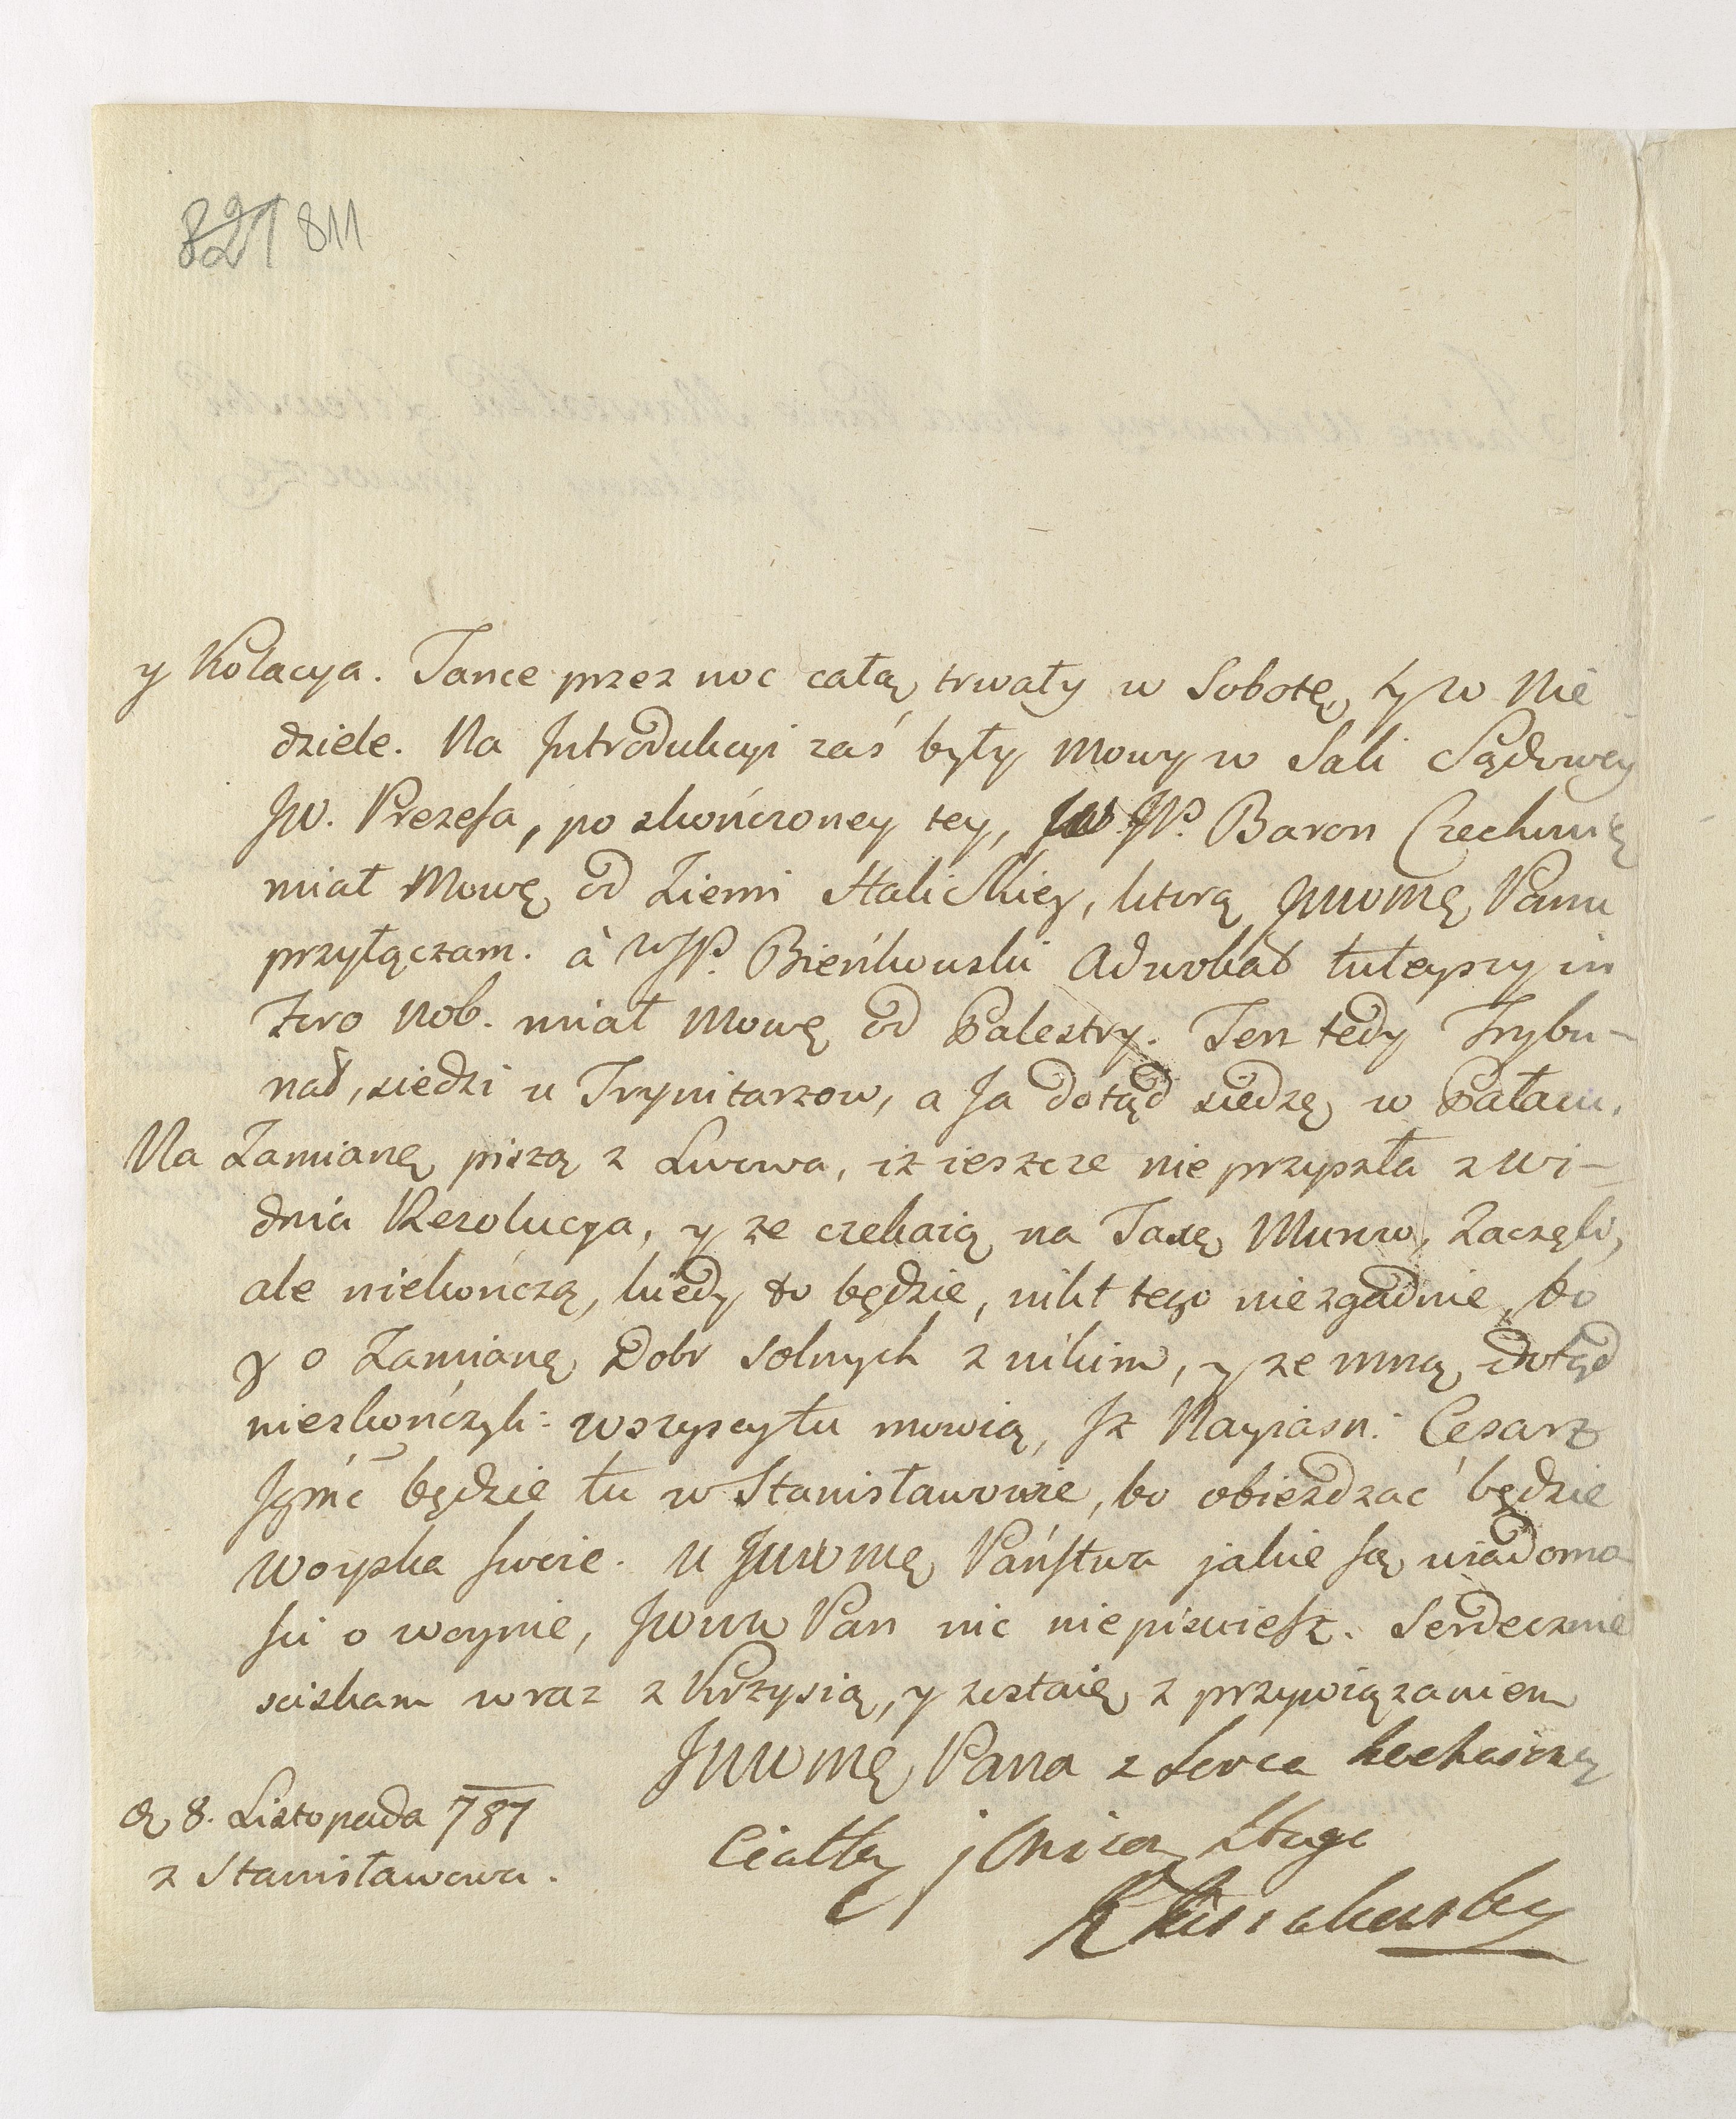 821 811
y Kolacya. Tance przez noc całą trwały w Sobotę, ty w Nie
dziele. Na Introdukcyi zaś były Mowy w Sali Sądowey
Jw. Prezesa, po skończoney tey, JP. Baron Czechowicz
miał Mowę od Ziemi Halickiey, ktorą JWWMę Panu
przyłączam. à WJP. Bieńkowski Adwokad tuteyszy in
Foro Nob. miał Mowę od Palestry. Ten tedy Trybu-
nał, siedzi u Trynitarzow, a Ja dotąd siedzę w Pałacu.
Na Zamianę piszą z Lwowa, iż ieszcze nie przyszła z Wi-
dnia Rezolucya, y ze czekaią na Taxę Murow, Zaczęli,
ale niekończą, kiedy to będzie, nikt tego nie zgadnie, bo
y o Zamianę Dobr Solnych z nikim, y ze mną dotąd
nieskończyli: wszyscy tu mowią, Jz Nayiasn: Cesarz
Jgmć będzie tu w Stanisławowie, bo obiezdzać będzie
Woyska swoie. U JWWMę Państwa jakie są wiadomo-
sci o woynie, JWWW Pan nic niepisziesz. Serdecznie
sciskam wraz z Krzysią, y zostaię z przywiązaniem
JWWMę Pana z serca kochaiący
d. 8. Listopada 787
z Stanisławowa.
Sługa